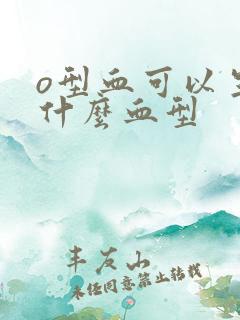 o型血可以生
什麼血型
丰友山
未经同意禁止转载